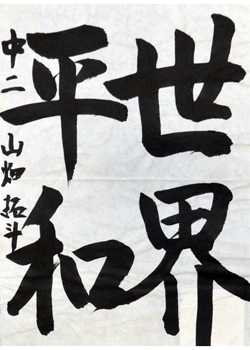 世界
平和
中二 山畑拓斗